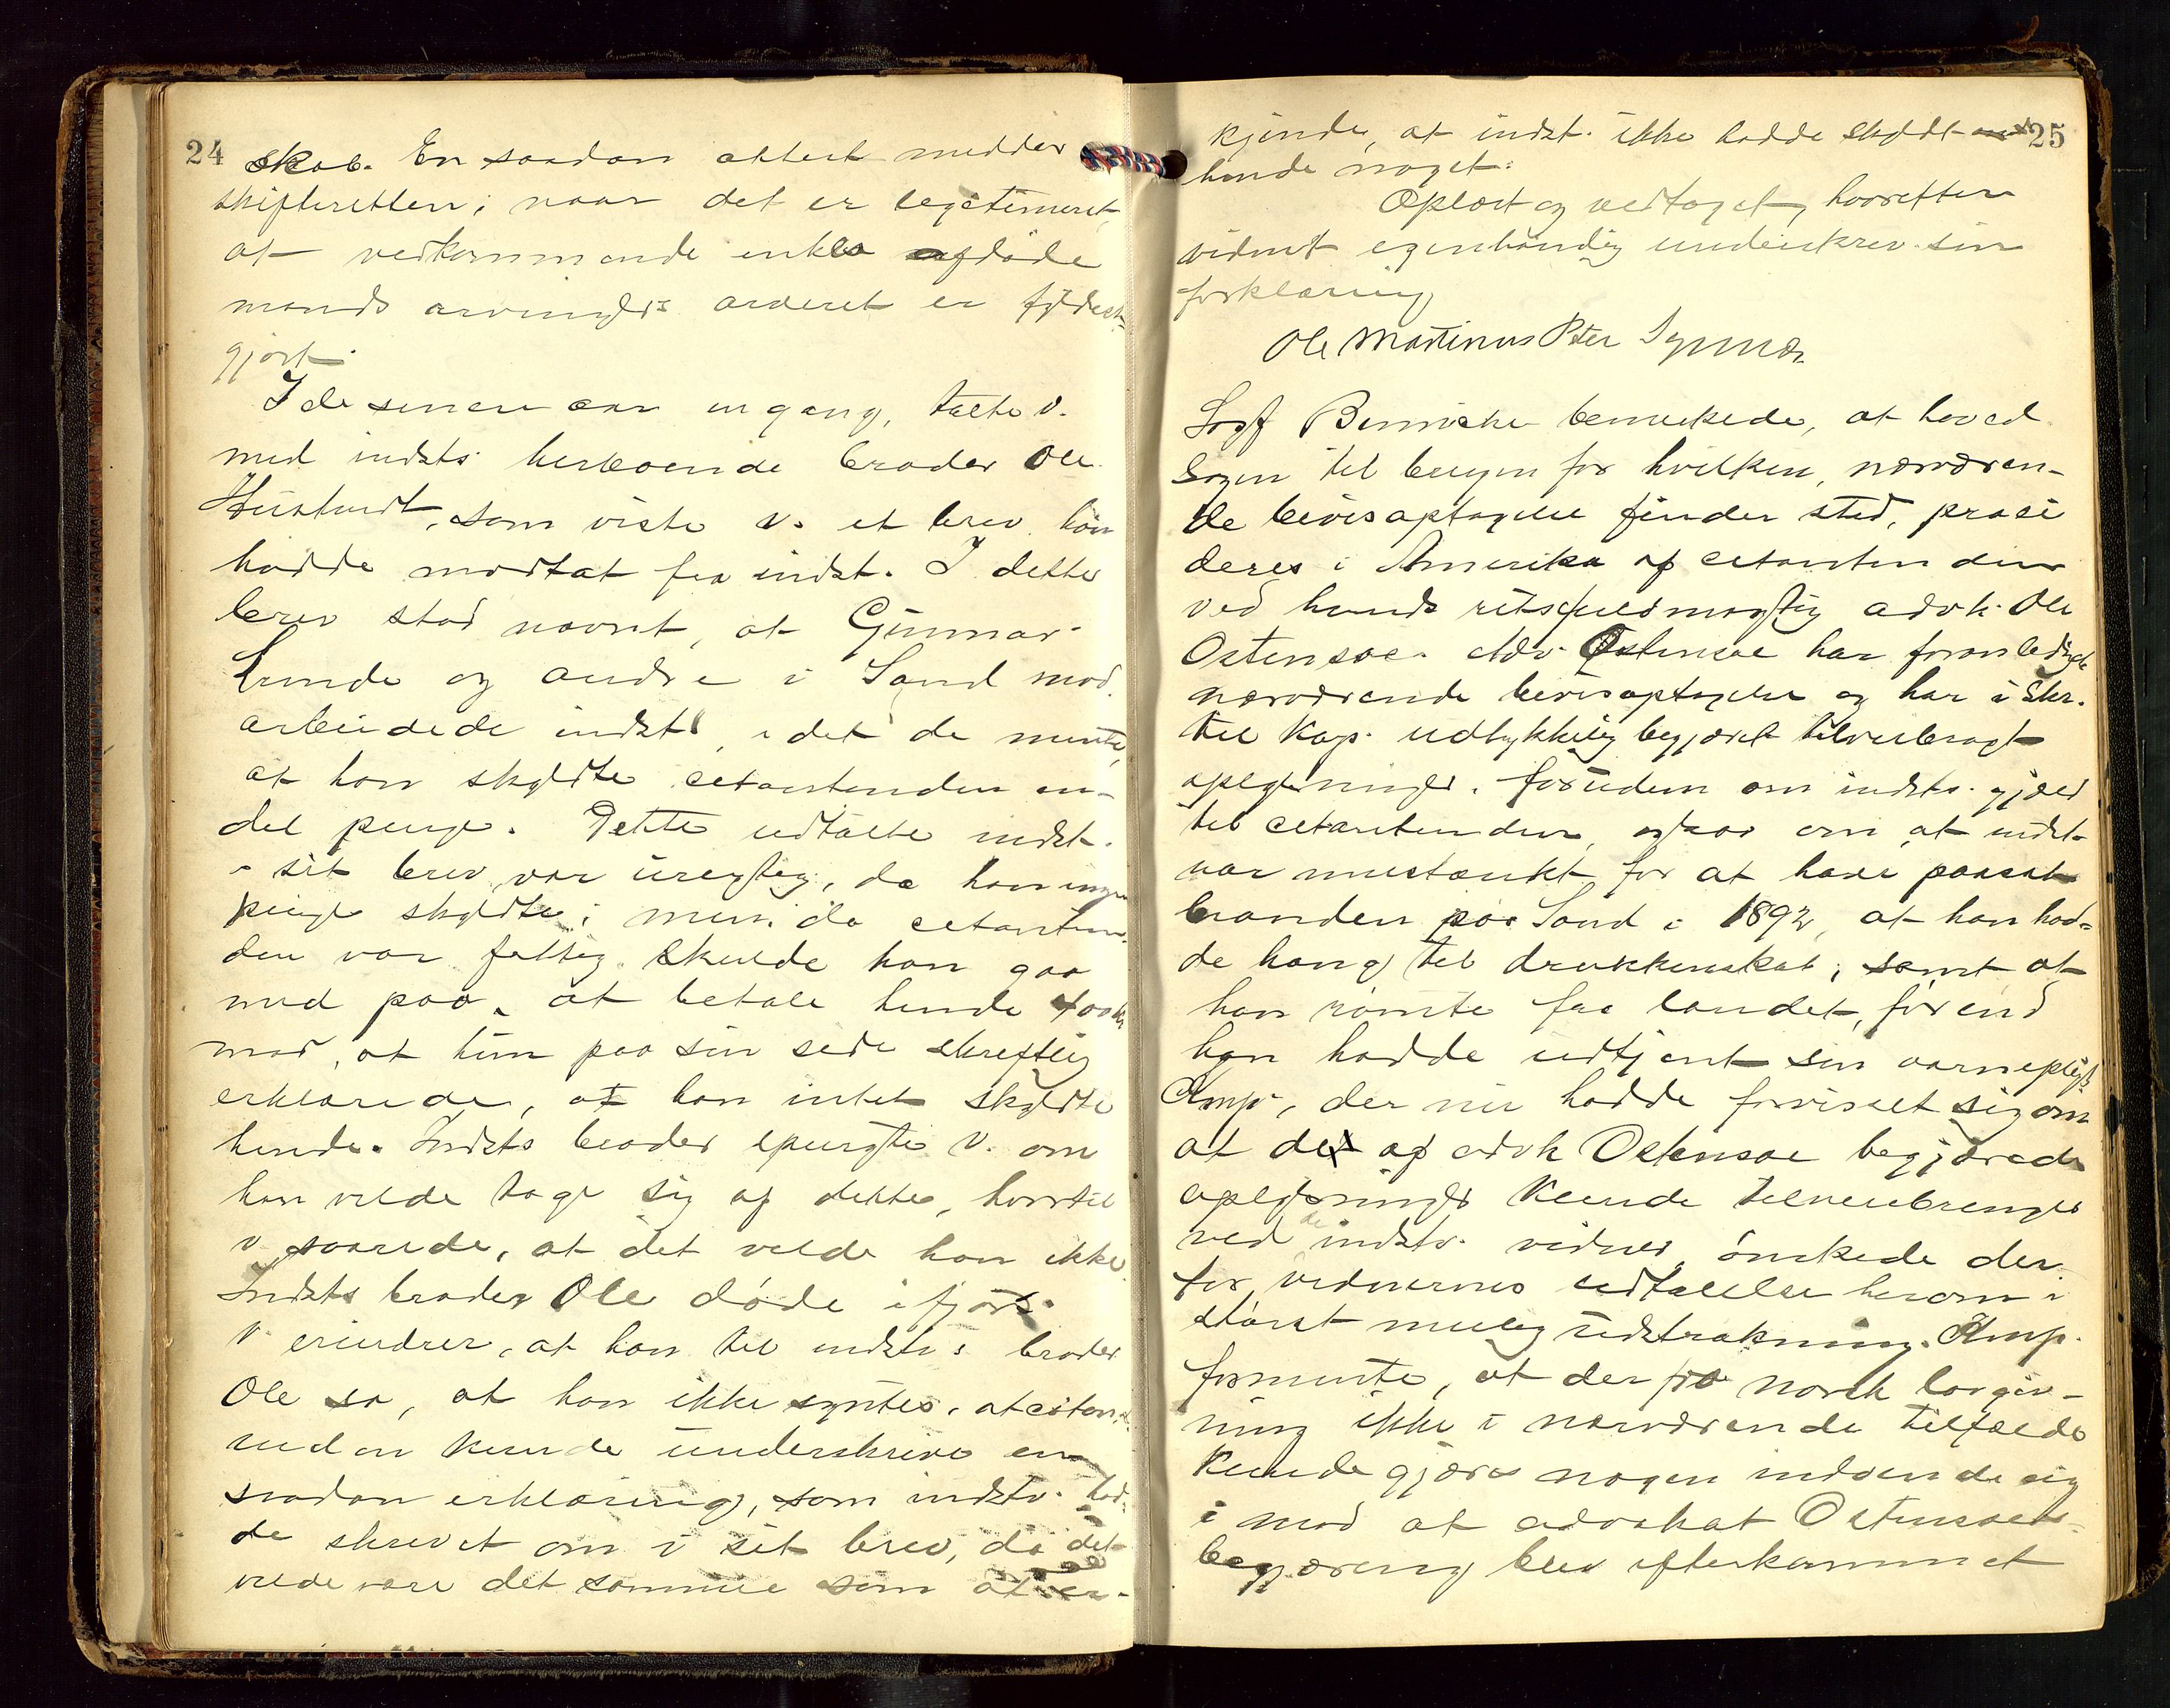 24
skab. En saadan attest meddeler
skifteretten, naar det er legitimeret,
at vedkommende enkes afdøde
mands arvinger er fyldest-
gjort.
I de senere aar en gang, talte v.
med indsts herboende broder Ole
som viste v. et brev han
hadde modtat fra indst. I dette
brev stod nævnt, at Gunnar
Lunde og andre i Sand mod-
arbeidede indst, idet de mente,
at han skyldte citantinden en-
del penge. Dette udtalte indst.
i sit brev var urigtig, da han ingen
penge skyldte; men da citantin-
den var fattig skulde han gaa
med paa, at betale hende 400 kr
mod, at hun paa sin side skriftlig
erklærede, at han intet skyldte
hende. Indsts broder spurgte v. om
han vilde tage sig af dette, hvortil
v. svarede, at det vilde han ikke.
Indsts broder Ole døde ifjor.
V. erindrer, at han til indsts broder
Ole sa, at han ikke syntes, at citan-
tinden kunde underskrive en
saadan erklæring, som indstv. had-
de skrevet om i sit brev, da det
vilde være det samme som at er-
25
kjende, at indst. ikke hadde skyldt
hende noget.
Oplæst og vedtaget, hvorefter
vidnet egenhændig underskrev sin
forklaring
Ole Martinus Peter
Sagf. bemerkede, at hoved-
sagen til brugen for hvilken, nærværen-
de bevisoptagelse finder sted, proce
deres i Amerika af citantinden
ved hends retsfuldmægtig advk. Ole
Ostensoe. Adv. Ostensoe har foranlediget
nærværende bevisoptagelse og har i skr.
til Kap. udtrykkelig begjæret tilveiebragt
oplysninger, foruden om indsts. gjæld
til citantinden, ogsaa om, at indst.
var mistænkt for at have paasat
branden paa Sand i 1892, at han had-
de hang til drukkenskab, samt at
han rømte fra landet, før end
han hadde udtjent sin værnepligt.
Kmp., der nu hadde forvisset sig om
at de af advk Ostensoe begjærede
oplysninger kunde tilveiebringes
ved de indstv. vidner, ønskede der-
for vidnernes udtalelse herom i
størst mulig udstrækning. Kmp.
formente, at der paa norsk lovgiv-
ning ikke i nærværende tilfælde
kunde gjøres nogen indvending
i mod at advokat Ostensoes
begjæring blev efterkommet